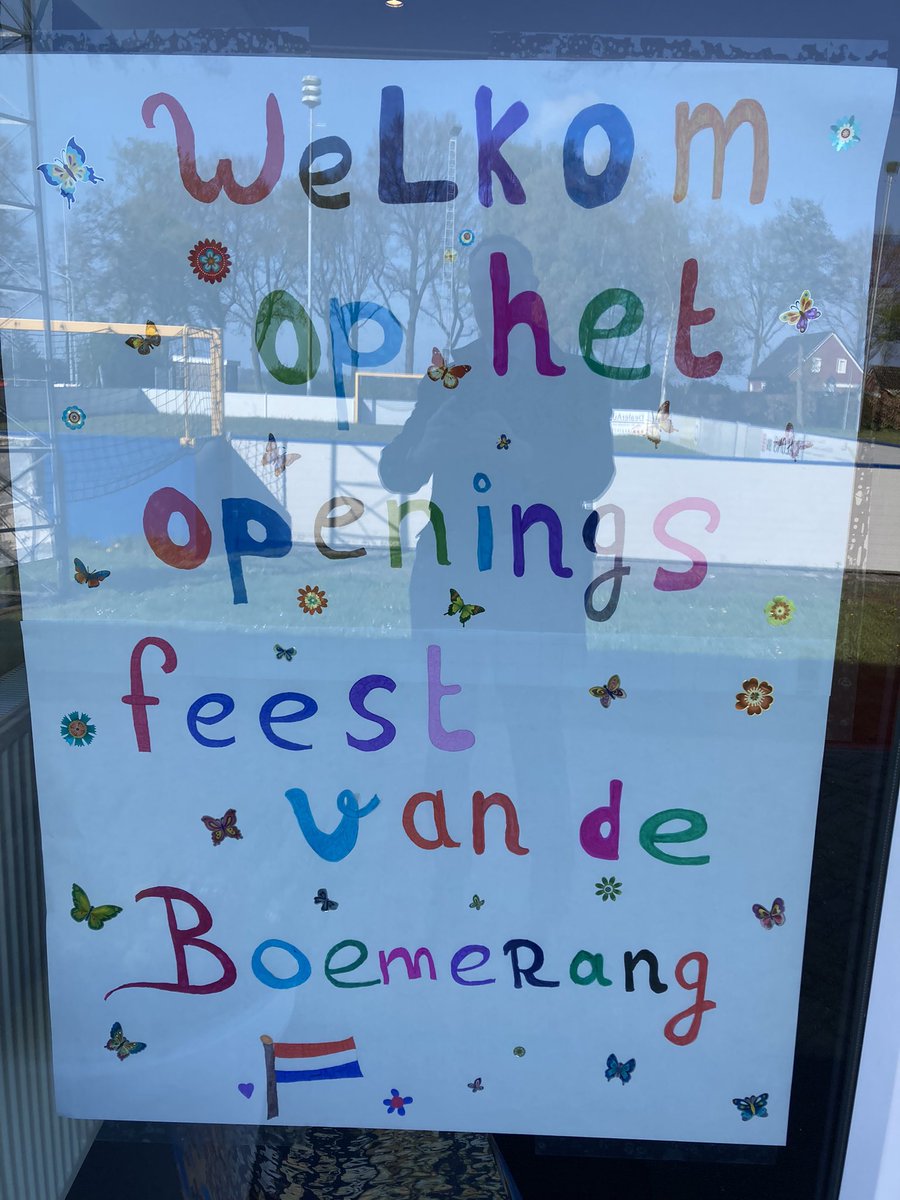 WeLKOm
op het
openings
feest
van de
BoemeRang